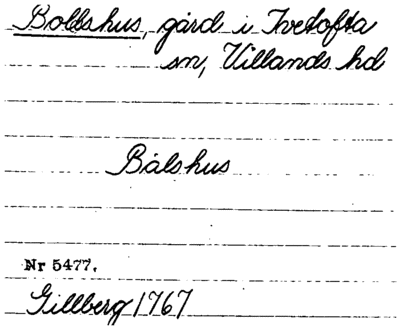 Bollshus, gård i Ivetofta
sn, Villands hd
Bålshus
Nr 5477.
Gillberg 1767